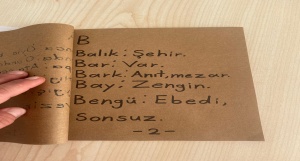 B
Balık: Şehir.
Bar: Var.
Bark: Anıt, mezar.
Bay: Zengin.
Bengü: Ebedi,
Sonsuz.
- 2 -